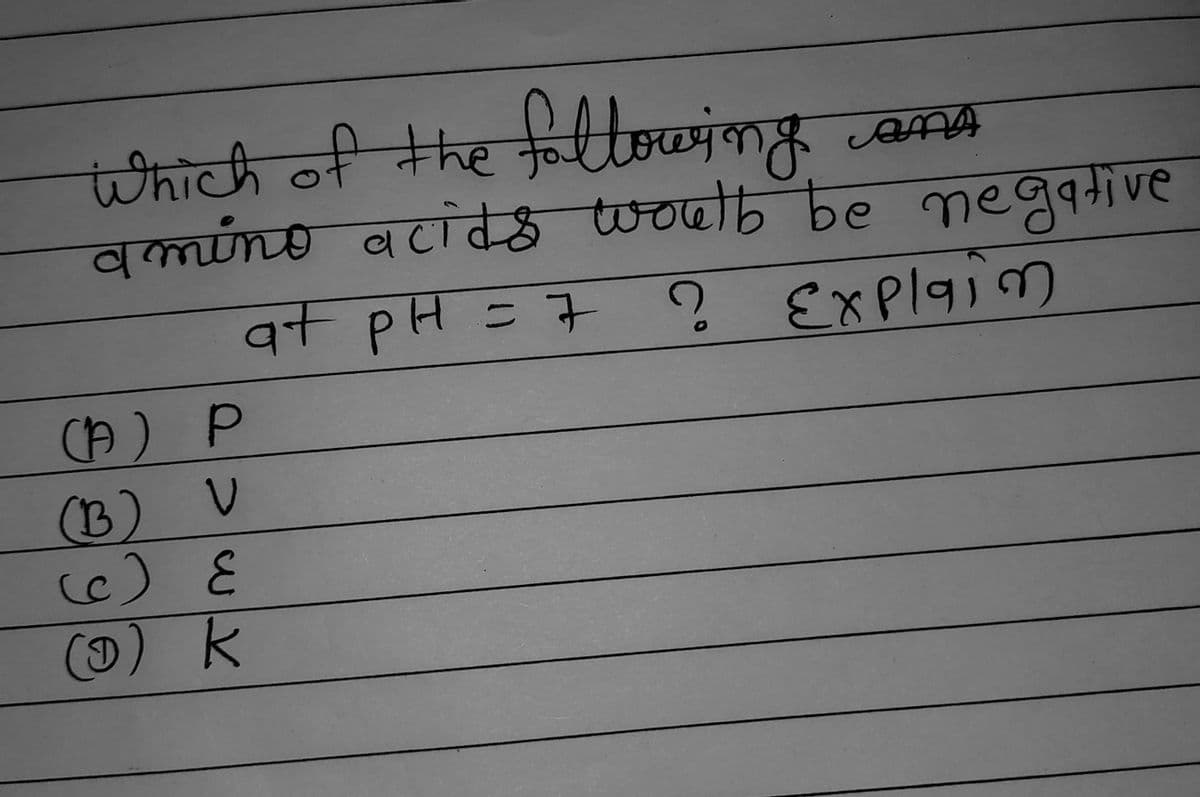 Which of the following
amino acids woulb be negative
at pH = 7 ? Explain
(A) P
(B) V
(C) E
(D) K